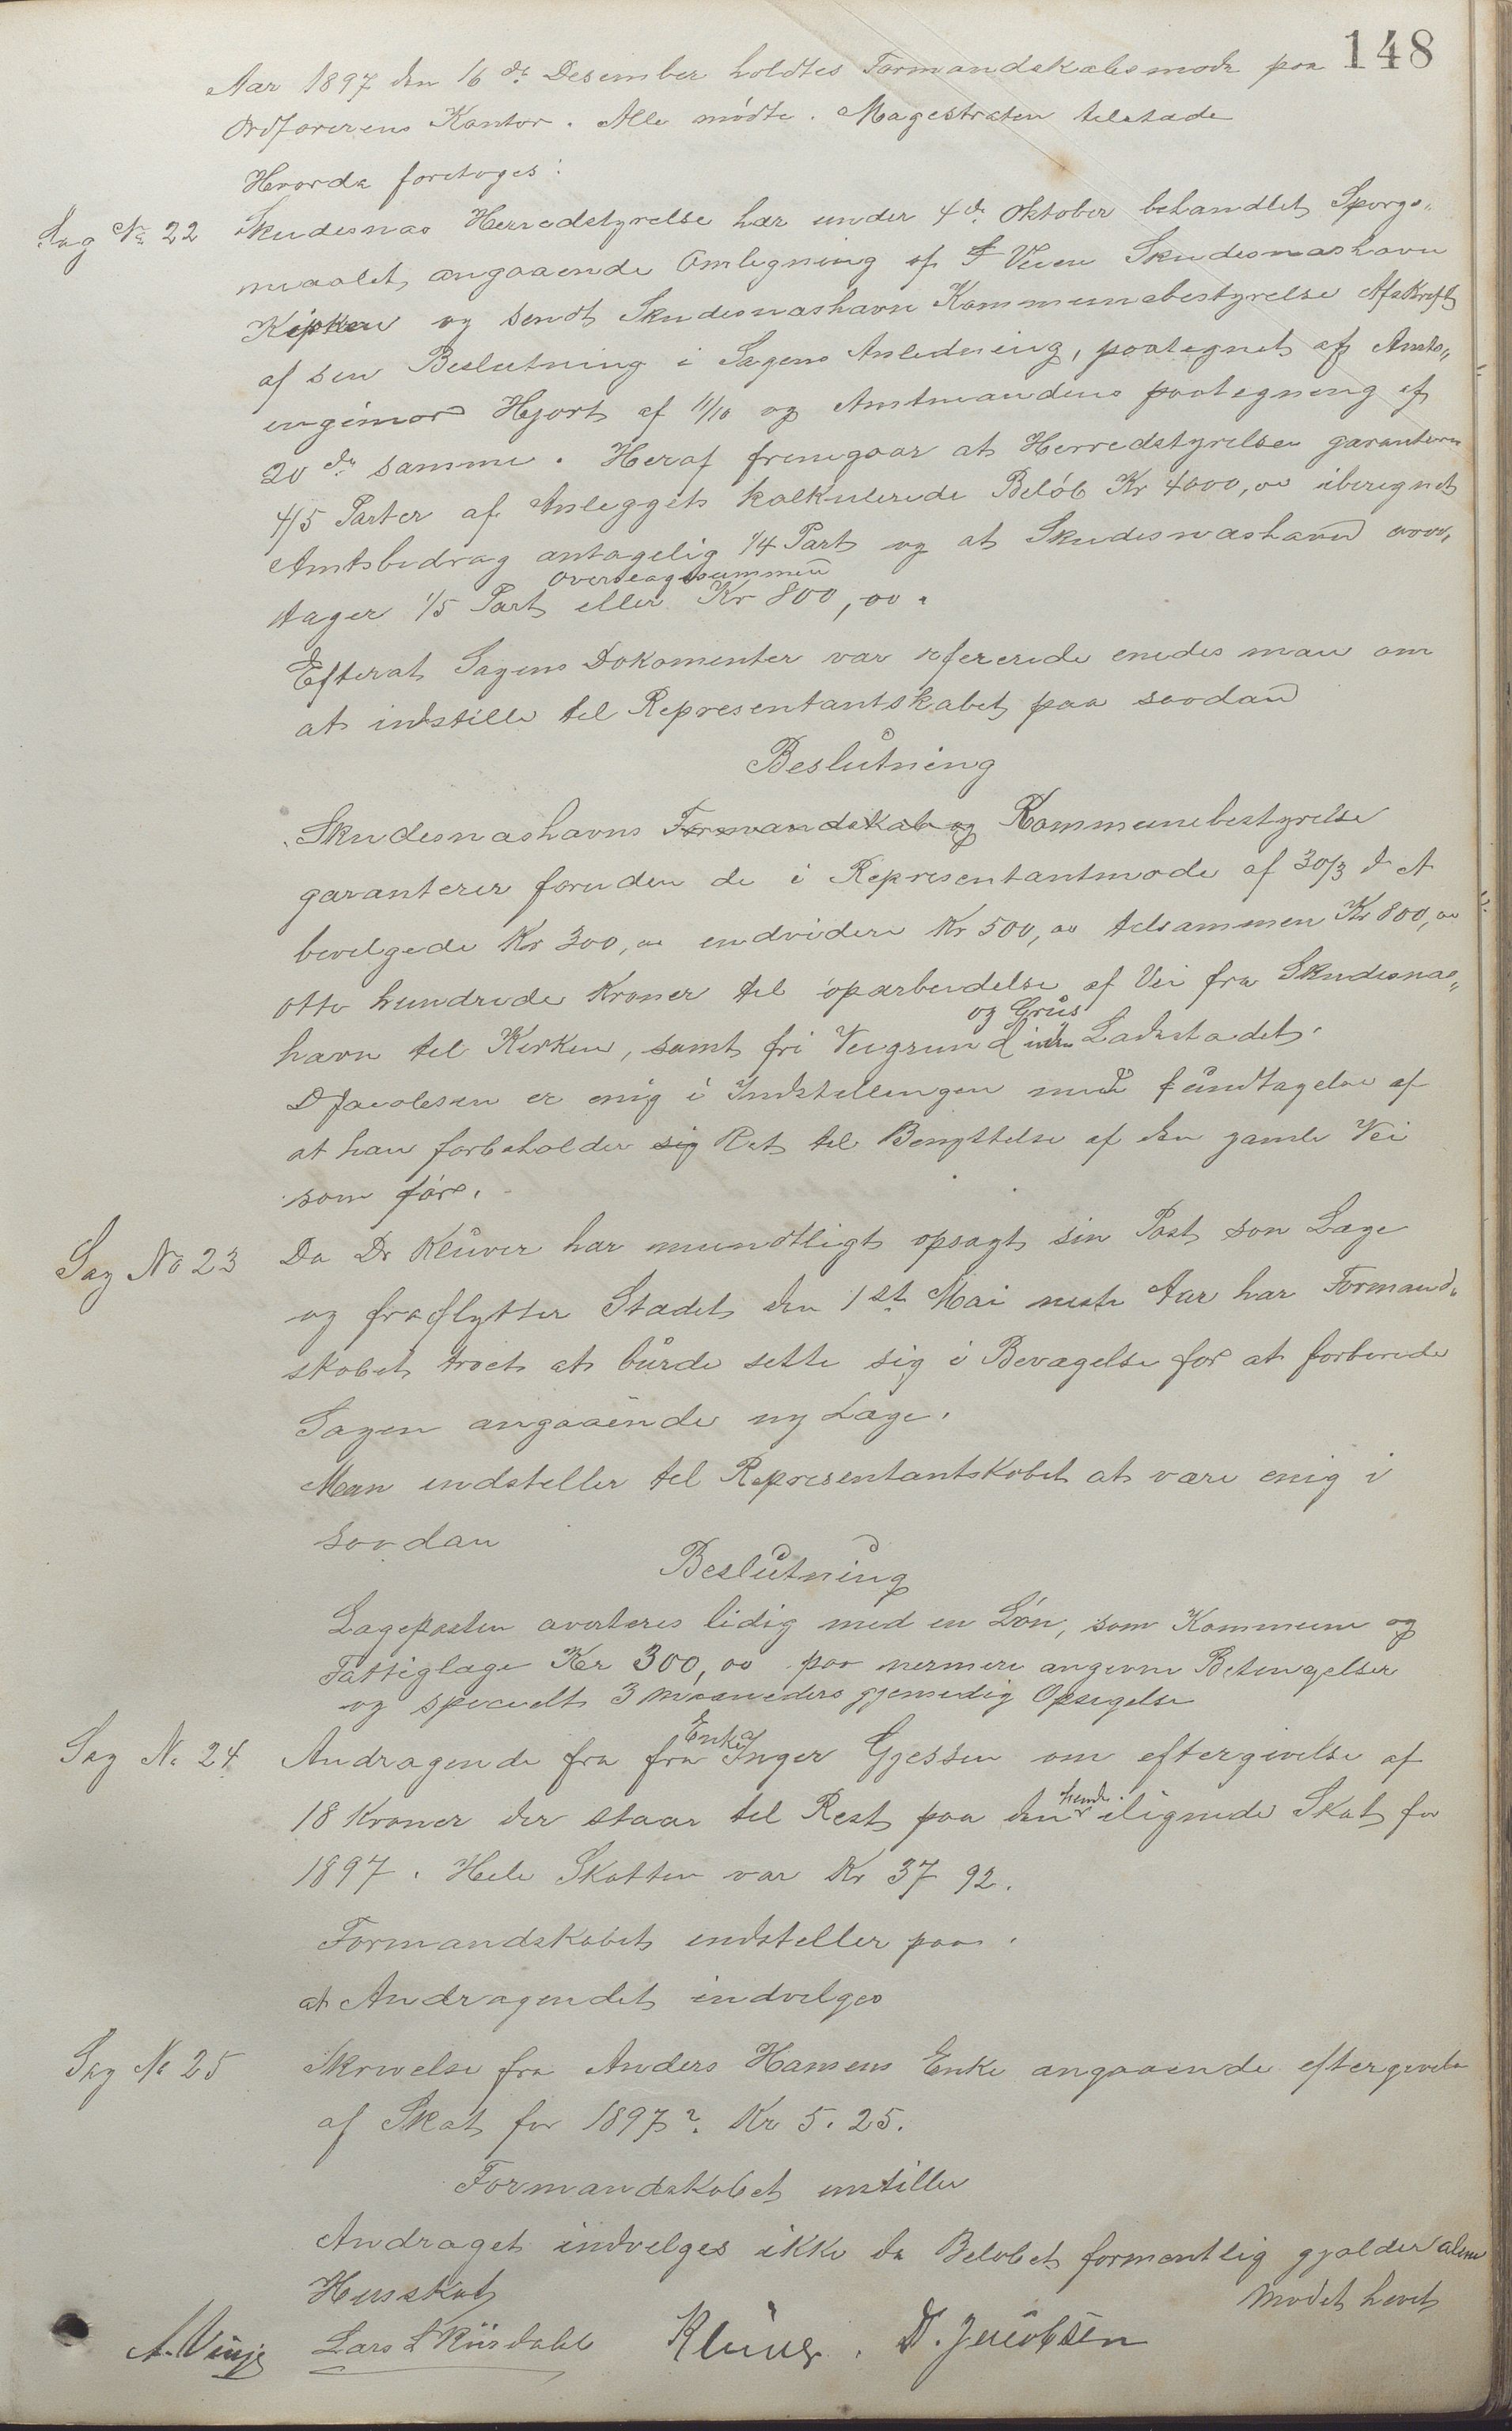 148
Aar 1897 den 16de Desember holdtes Formandskabsmøde paa
Ordførerens Kontor. Alle mødte. Magestraten tilstede
Hvorda foretoges:
Sag No 22 Skudesnæs Herredstyrelse har under 4de Oktober behandlet Spørgs„
maalet angaaende Omlegning af Veien Skudesnæshavn
Kirken og sendt Skudesnæshavn Kommunebestyrelse Afskrift
af sin Beslutning i Sagens Anledning, paategnet af Amts„
ingeniør Hjort af 11/10 og Amtmandens paategning af
20de samme. Heraf fremgaar at Herredstyrelsen garanterer
4/5 Parter af Anleggets kalkulerede Beløb Kr 4000,00 iberegnet
Amtsbidrag antagelig 1/4 Part og at Skudesnæshavn over„
overslagssummen
tager 1/5 Part eller Kr 800,00.
Efterat Sagens Dokomenter var refererede enedes man om
at indstille til Representantskabet paa saadan
Beslutning
Skudesnæshavns Formandskab og Kommunebestyrelse
garanterer foruden de i Representantmøde af 30/3 d A
bevilgede Kr 300,00 endvidere Kr 500,00 tilsammen Kr 800,00
otte hundrede Kroner til oparbeidelse af Vei fra Skudesnæs„
og Grus
havn til Kirken, samt fri Veigrund inden Ladestedet.
D Jacobsen er enig i Indstillingen med undtagelse af
at han forbeholder sig Ret til Benyttelse af den gamle Vei
som før.
Sag No 23 Da Dr Klüver har mundtligt opsagt sin Post som Læge
og fraflytter Stedet den 1ste Mai neste Aar har Formand„
skabet troet at burde sette sig i Bevægelse for at forberede
Sagen angaaende ny Læge.
Man indstiller til Representantskabet at være enig i
saadan
Beslutning
Lægeposten averteres ledig med en Løn, som Kommune og
Fattiglæge Kr 300,00 paa nermere angivne Betingelser
og specielt 3 maaneders gjensidig Opsigelse
Enke
Sag No 24 Andragende fra fra Inger Gjessen om eftergivelse af
hende
18 Kroner der staar til Rest paa den ilignede Skat for
1897. Hele Skatten var Kr 37 92.
Formandskabet indstiller paa.
at Andragendet indvilges
Sag No 25 Skrivelse fra Anders Hansens Enke angaaende eftergivelse
af Skat for 1897? Kr 5.25.
Formandskabet instiller
Andraget indvilges ikke da Beløbet formentlig gjælder alene
Husskat
Mødet hevet
A. Vinje Lars L Risdahl Klüver. D. Jacobsen